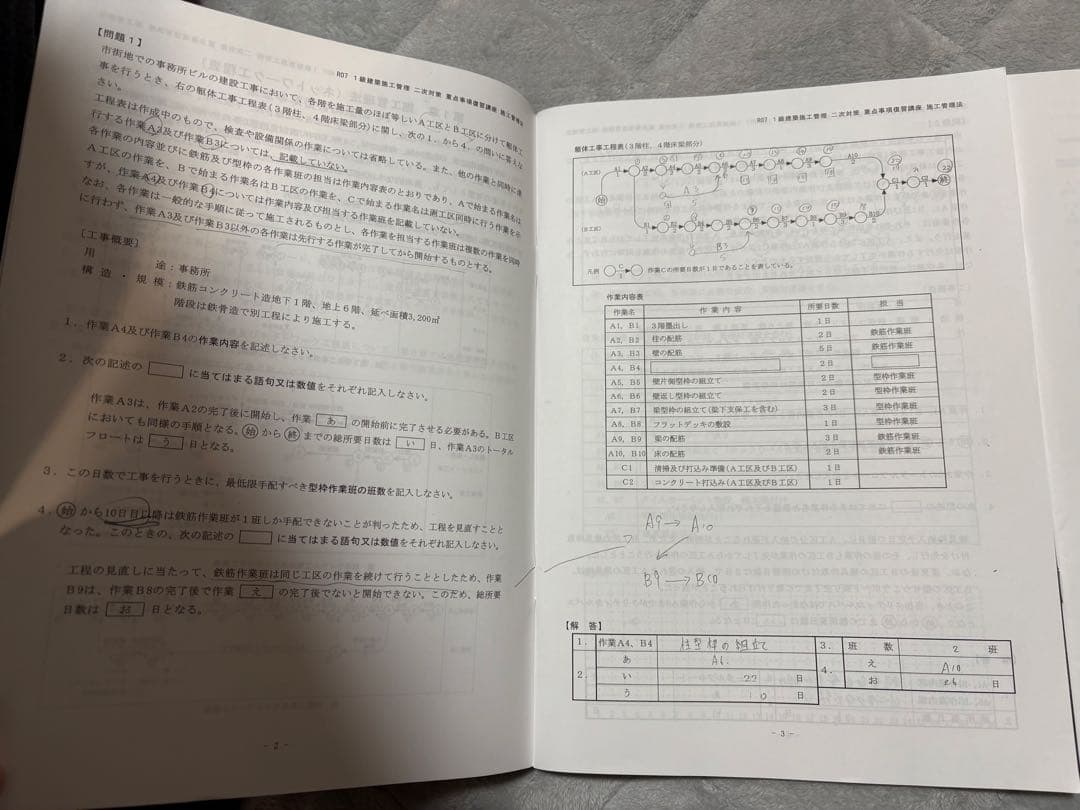 【問題1】
市街地での事務所ビルの建設工事において、各階を施工量のほぼ等しいA工区とB工区に分けて躯体工
事を行うとき、右の躯体工事工程表(3階柱、4階床梁部分)に関し、次の1.から4.の問いに答えな
さい。
工程表は作成中のもので、検査や設備関係の作業については省略している。また、他の作業と同時に進
行する作業A3及び作業B3については、記載していない。
各作業の内容並びに鉄筋及び型枠の各作業班の担当は作業内容表のとおりであり、Aで始まる作業名は
A工区の作業を、Bで始まる作業名はB工区の作業を、Cで始まる作業名は両工区同時に行う作業を示
すが、作業A4及び作業B4については作業内容及び担当する作業班を記載していない。
なお、各作業は一般的な手順に従って施工されるものとし、各作業を担当する作業班は複数の作業を同時
に行わず、作業A3及び作業B3以外の各作業は先行する作業が完了してから開始するものとする。
[工事概要]
用 途:事務所
構造・規模:鉄筋コンクリート造地下1階、地上6階、延べ面積3,200㎡
階段は鉄骨造で別工程により施工する。
1.作業A4及び作業B4の作業内容を記述しなさい。
2.次の記述の に当てはまる語句又は数値をそれぞれ記入しなさい。
作業A3は、作業A2の完了後に開始し、作業 あ の開始前に完了させる必要がある。B工区
においても同様の手順となる。始から終までの総所要日数は い 日、作業A3のトータル
フロートは う 日となる。
3.この日数で工事を行うときに、最低限手配すべき型枠作業班の班数を記入しなさい。
4.始から10日目以降は鉄筋作業班が1班しか手配できないことが判ったため、工程を見直すことと
なった。このときの、次の記述の に当てはまる語句又は数値をそれぞれ記入しなさい。
工程の見直しに当たって、鉄筋作業班は同じ工区の作業を続けて行うこととしたため、作業
B9は、作業B8の完了後で作業 え の完了後でないと開始できない。このため、総所要
日数は お 日となる。
- 2 -
R07 1級建築施工管理 二次対策 重点事項復習講座 施工管理法
R07 1級建築施工管理 二次対策 重点事項復習講座 施工管理法
躯体工事工程表(3階柱、4階床梁部分)
(A工区)
A3
A10
始
終
(B工区)
B3
5
B10
凡例 C 1 作業Cの所要日数が1日であることを表している。
作業内容表
作業名 作業内容 所要日数 担当
A1、B1 3階墨出し 1日
A2、B2 柱の配筋 2日 鉄筋作業班
A3、B3 壁の配筋 5日 鉄筋作業班
A4、B4 2日
A5、B5 壁片側型枠の組立て 2日 型枠作業班
A6、B6 壁返し型枠の組立て 2日 型枠作業班
A7、B7 梁型枠の組立て(梁下支保工を含む) 3日 型枠作業班
A8、B8 フラットデッキの敷設 1日 型枠作業班
A9、B9 梁の配筋 3日 鉄筋作業班
A10、B10 床の配筋 2日 鉄筋作業班
C1 清掃及び打込み準備(A工区及びB工区) 1日
C2 コンクリート打込み(A工区及びB工区) 1日
A9→A10
B9→B10
【解 答】
1. 作業A4、B4 柱型枠の組立て 3. 班数 2 班
2. あ A6 4. え A10
い 22 日 お 26 日
う 10 日
- 3 -